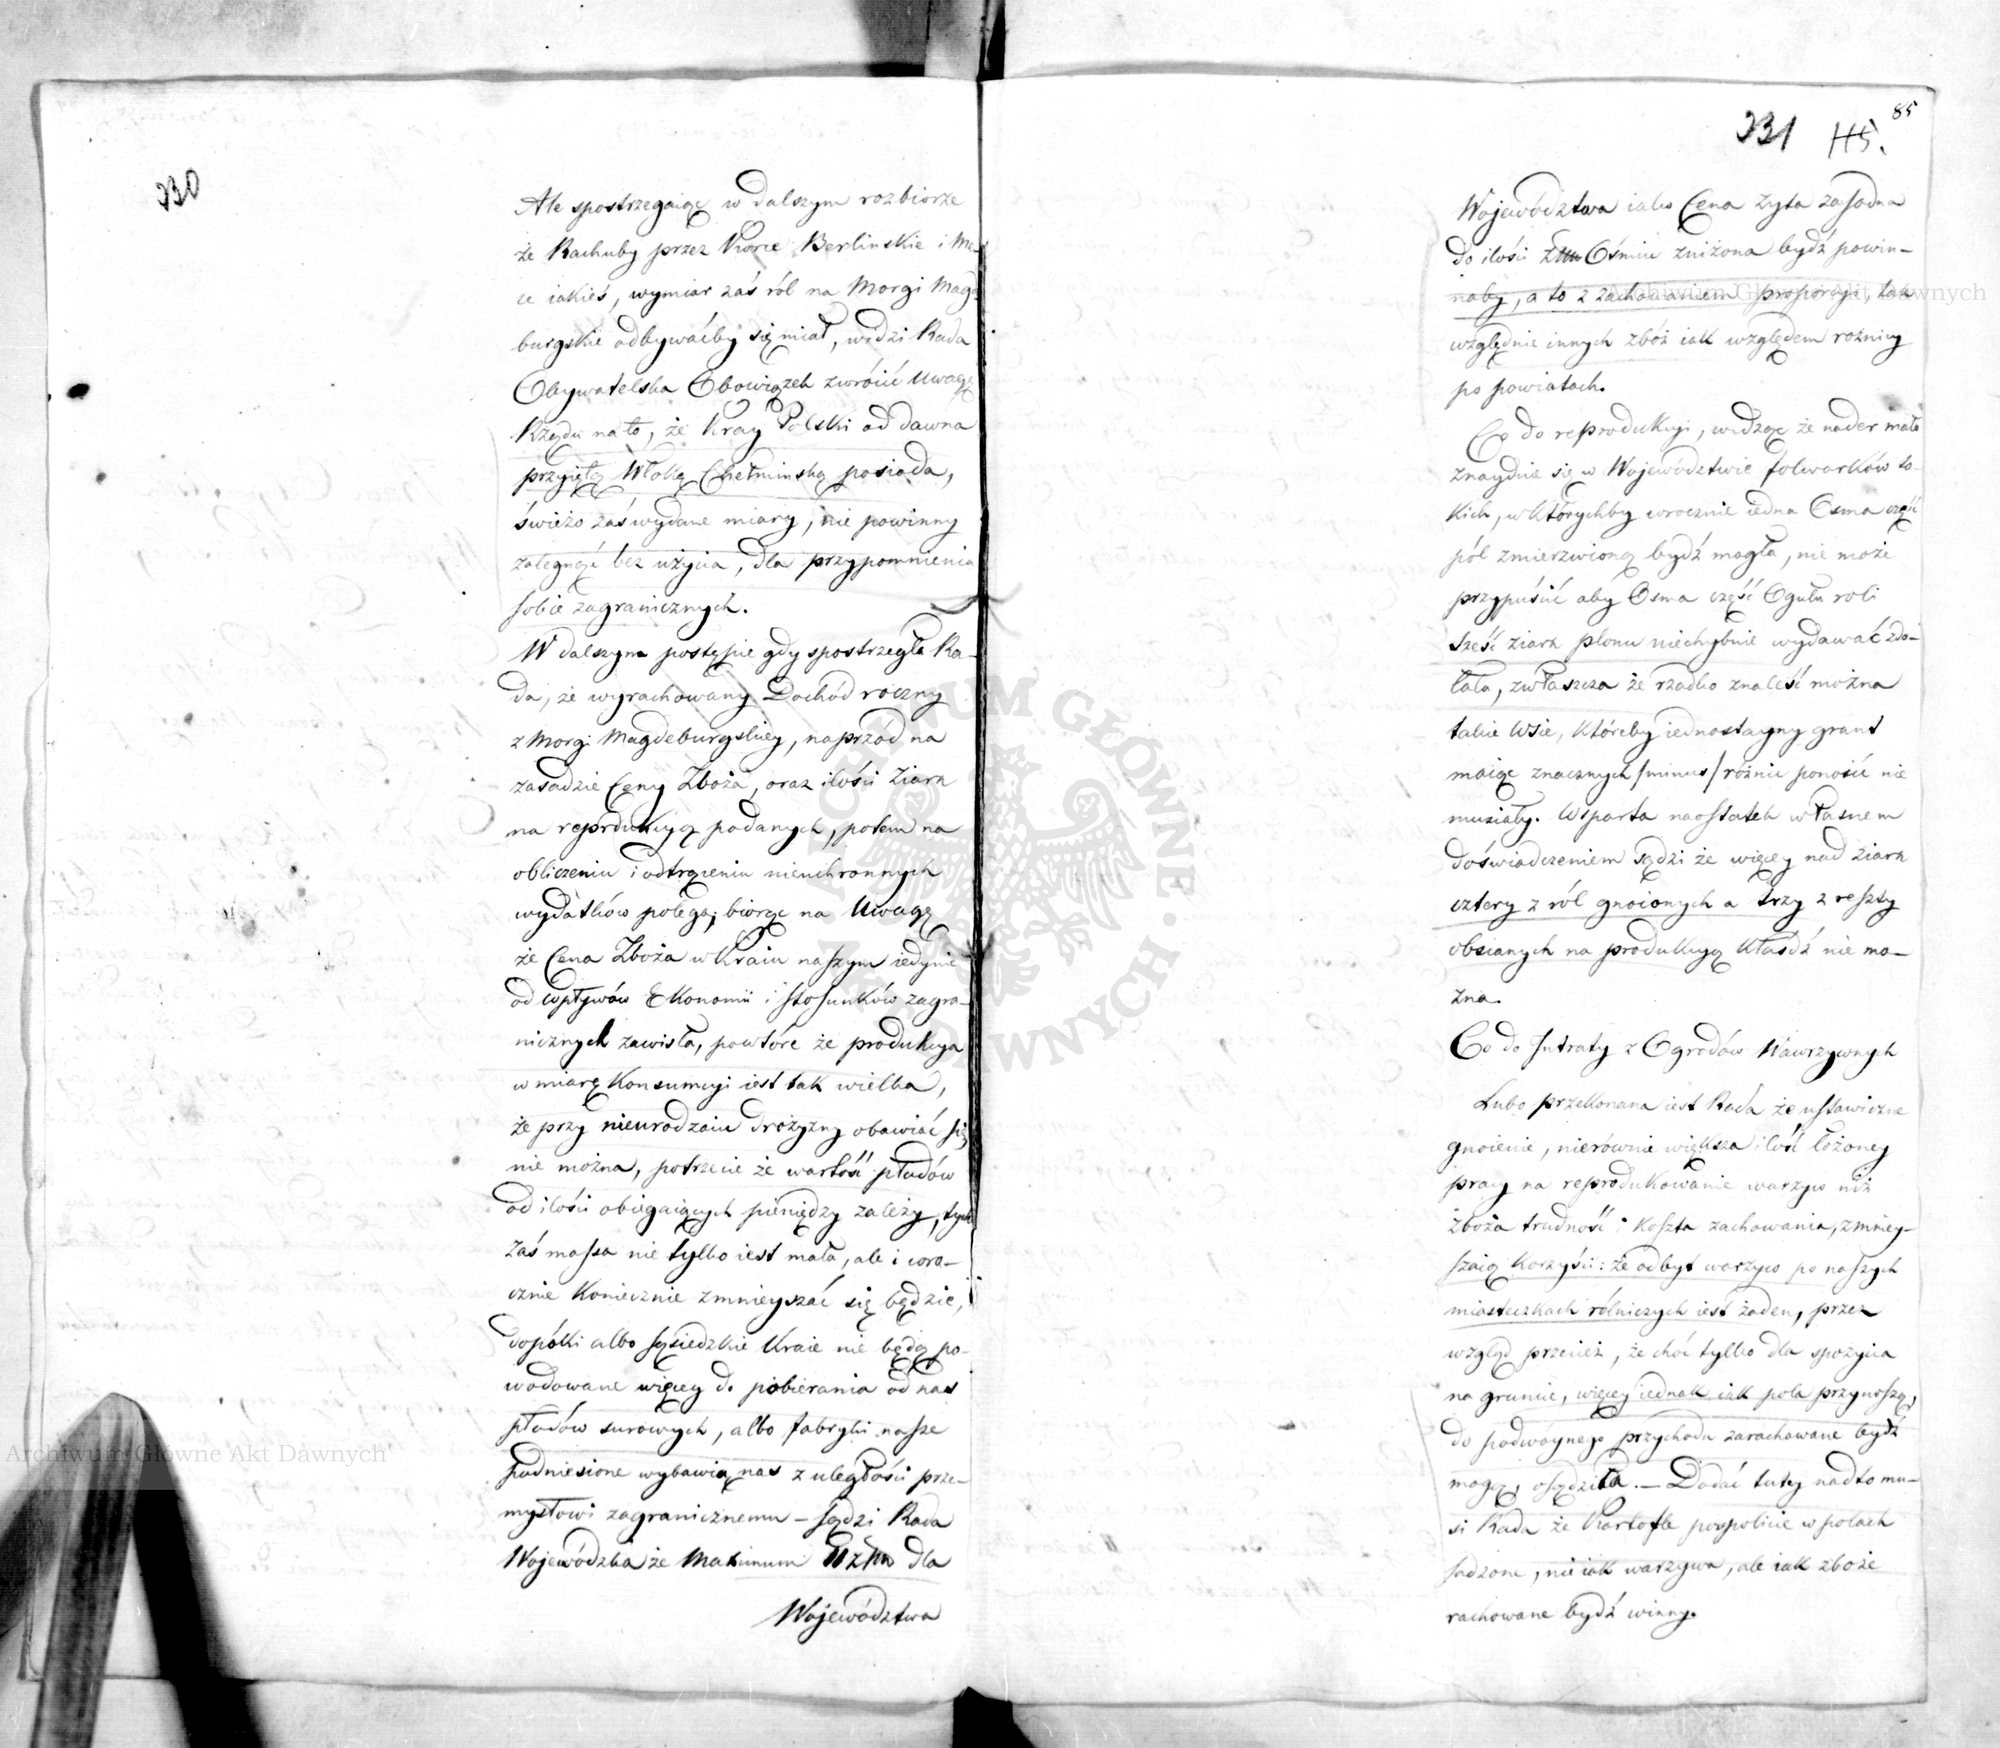 330
Ale spostrzegaiąc w dalszym rozbiorze
że Rachuby przez Korce Berlinskie i Me-
ce iakieś, wymiar zaś ról na Morgi Magde
burgskie odbywaćby się miał, widzi Rada
Obywatelska Obowiązek zwrócić uwagę
Rządu na to, że Kray Polski od dawna
przyiętą Włokę Chełminską posiada,
świeżo zaś wydane miary, nie powinny
zalegnąć bez użycia, dla przypomnienia
sobie zagranicznych.
W dalszym postępie gdy spostrzegła Ra-
da, że wyrachowany Dochód roczny
z Morgi Magdeburgskiey, naprzód na
zasadzie Ceny Zboża, oraz ilości Ziarn
na reprdukcyą podanych, potem na
obliczeniu i odtrąceniu nieuchronnych
wydatków polega; biorąc na Uwagę
że Cena Zboża w Kraiu naszym iedynie
od wpływów Ekonomii i stosunków zagra-
nicznych zawisła, powtóre że produkcya
w miarę Konsumcyi iest tak wielka,
że przy nieurodzaiu drożyzny obawiać się
nie można, potrzecie że wartość płodów
od ilości obiegaiących pieniędzy zależy, tych
zaś massa nie tylko iest mała, ale i coro-
cznie Koniecznie zmnieyszać się będzie,
dopóki albo sąsiedzkie Kraie nie będą po-
wodowane więcey do pobierania od nas
płodów surowych, albo fabryki nasze
podniesione wybawią nas z uległości prze-
mysłowi zagranicznemu – sądzi Rada
Wojewódzka że Maximum dla
Województwa
331 115.
85
Województwa iako Cena Zyta zasadna
do ilości Ośmiu zniżona bydź powin-
naby, a to z zachowaniem proporcyi, tak
względnie innych zbóż iak względem rożnicy
po powiatach.
Co do reprodukcyi, widząc że nader mało
znaydzie się w Województwie folwarków ta-
kich, w którychby corocznie iedna Osma część
pól zmierzwioną bydź mogła, nie może
przypuścić aby Osma część Ogułu roli
Sześć ziarn plonu niechybnie wydawać zdo-
łała, zwłaszcza że rzadko znaleść można
takie wsie, któreby iednostayny grunt
maiąc znacznych /minus/ różnic ponosić nie
musiały. Wsparta naostatek własnem
doświadczeniem sądzi że więcey nad ziarn
cztery z ról gnoionych a trzy z reszty
obsianych na produkcyą kłaśdź nie mo-
żna.
Co do Intraty z Ogrodów Warzywnych
Lubo przekonana iest Rada że ustawiczne
gnoienie, nierównie większa ilość łożoney
pracy na reprodukowanie warzyw niż
zboża trudność i koszta zachowania, zmniey-
szaią korzyści: że odbyt warzyw po naszych
miasteczkach rólniczych iest żaden, przez
wzgląd przecież, że choć tylko dla spożycia
na gruncie, więcey iednak iak pola przynoszą,
do podwoynego przychodu zarachowane bydź
mogą, osądziła. – Dodać tutey nadto mu-
si Rada że Kartofle pospolicie w polach
sadzone, nie iak warzywa, ale iak zboże
rachowane bydź winny.
Archiwum Główne Akt Dawnych
Archiwum Główne Akt Dawnych
ARCHIWUM GŁÓWNE AKT DAWNYCH